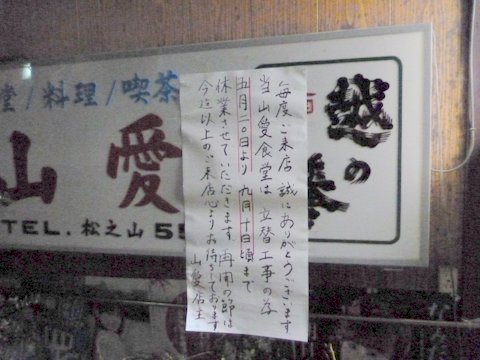 堂/料理/喫茶
山愛
TEL. 松之山55
越の
毎度ご来店誠にありがとうございます
当山愛食堂は立替工事の為
五月二〇日より九月十日頃まで
休業させていただきます 再開の節は
今迄以上のご来店心よりお待ちしております
山愛店主